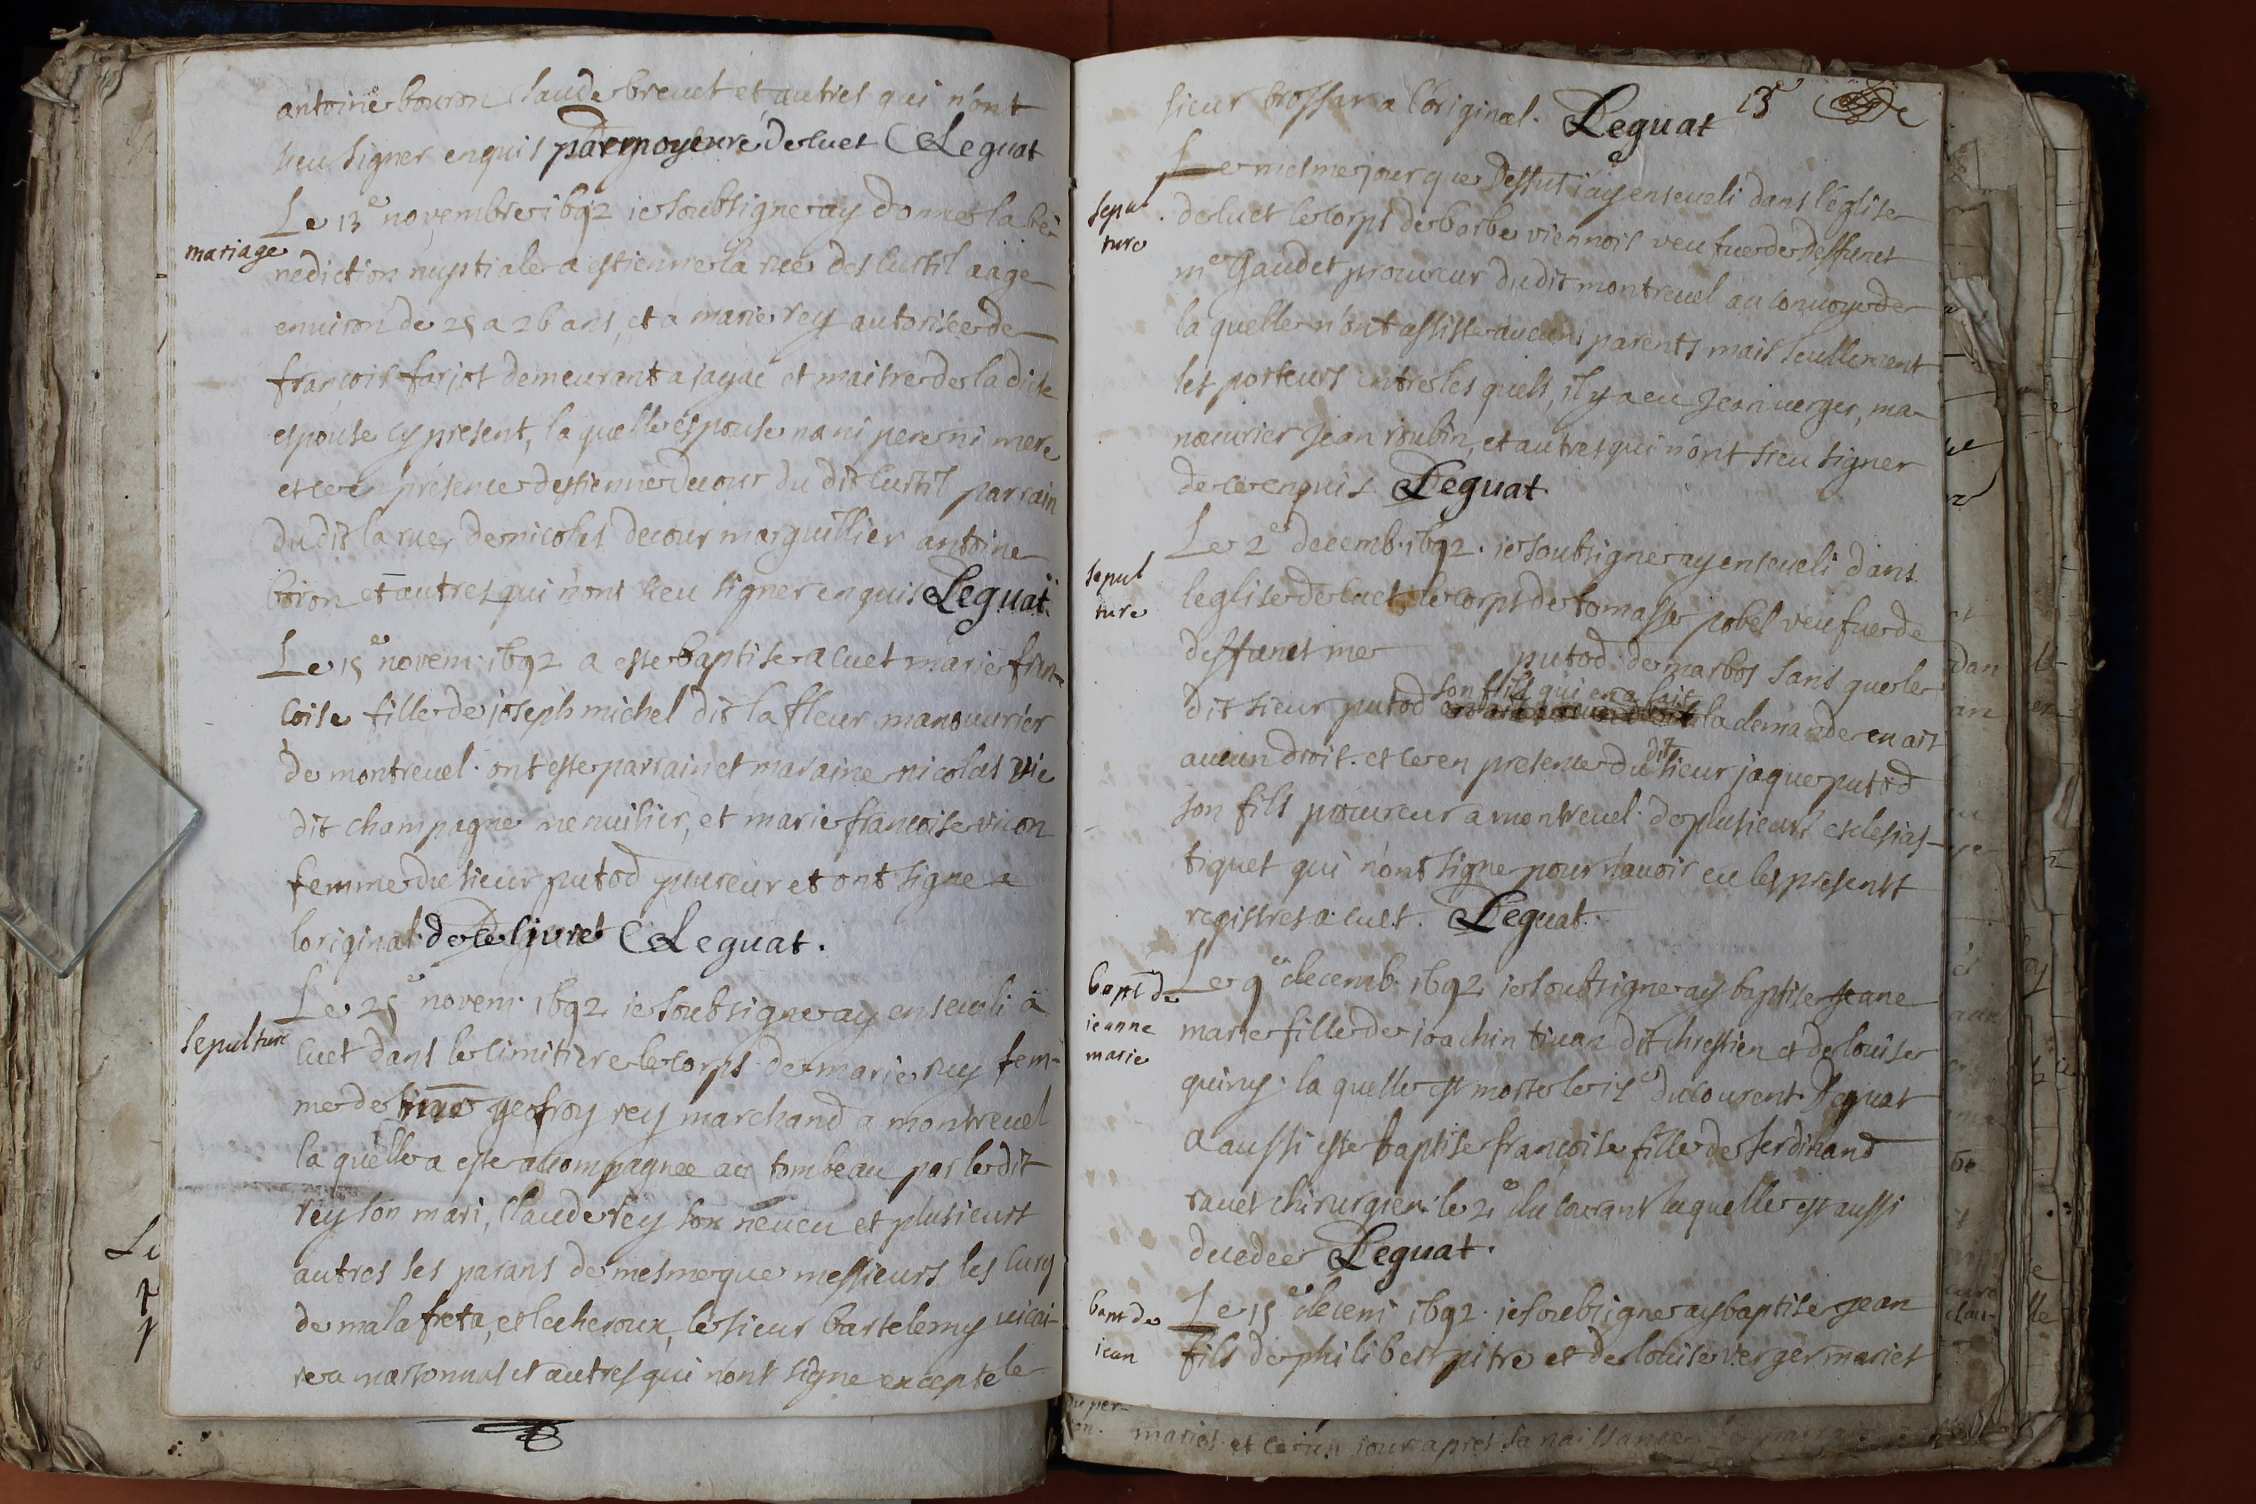 antoine bouron Claude brevet et autres qui n'ont
sceu signer enquis par moy curé de cuet Leguat
Le 13e novembre 1692 ie soubsigne ay donne la bé-
mariage
nediction nuptiale a estienne la rue des custil aage
environ de 25 a 26 ans, et a marie rey autorisee de
françois farjot demeurant a jayac et maitre de la dicte
espouse cy present, la quelle espouse na ni pere ni mere
et ce en présence destienne decour du dit custil parrain
du dit la rue, de nicolas decour marguillier antoine
boron et autres qui n'ont sceu signer enquis Leguat.
Le 15e novem. 1692 a este baptise a cuet marie fran-
coise fille de joseph michel dit la fleur manouvrier
de montrevel. ont este parrain et maraine nicolas
dit champagne menuisier, et marie francoise
femme du sieur putod procureur et ont signe a
loriginal de ce livre Leguat.
Le 25e novem. 1692 ie soubsigne ay enseveli a
sepulture
cuet dans le cimitiere le corps de marie fem-
me de geofroy rey marchand a montrevel
la quelle a este accompagnee au tombeau par le dit
rey son mari, Claude rey son neveu et plusieurs
autres ses parans de mesme que messieurs les curés
de malafreta, et lecheroux, le sieur bartelemy vicai-
re a marsonnas et autres qui n'ont signe excepte le
sieur brossar a l'original. Leguat 13
Le mesme jour que dessus i'ay enseveli dans l'église
sepul
ture
de cuet le corps de barbe viennois veufue de deffunct
me Gaudet procureur du dit montrevel au convoy de
la quelle n'ont assiste aucuns parents mais seullement
les porteurs entre les quels, il y a eu Jean verger, ma-
nouvrier Jean roubin, et autres qui n'ont sceu signer
de ce enquis Leguat
Le 2e decemb. 1692. ie soubsigne ay enseveli dans
sepul
ture
l'eglise de cuet, le corps de tomasse veufue de
deffunct me putod de marbos sans que le
dit sieur putod son fils qui en a fait la demande en ait
aucun droit. et ce en presence du dit sieur jaque putod
son fils procureur a montrevel. de plusieurs esclesias-
tiques qui n'ont signe pour n'avoir eu les presents
registres a cuet. Leguat.
Le 9e decemb. 1692 ie soubsigne ay baptise jeane
bapt de
jeanne
marie
marie fille de joachin dit chrestien et de louise
quiny. la quelle est morte le du courent. Leguat
a aussi este baptise francoise fille de ferdinand
ravet chirurgien le 2e du courant laquelle est aussi
decedee Leguat.
Le 15e decem 1692. ie soubsigne ay baptise jean
bapt de
jean
fils de philibert pitre et de louise verger maries
maries et ce un jour apres sa naissance